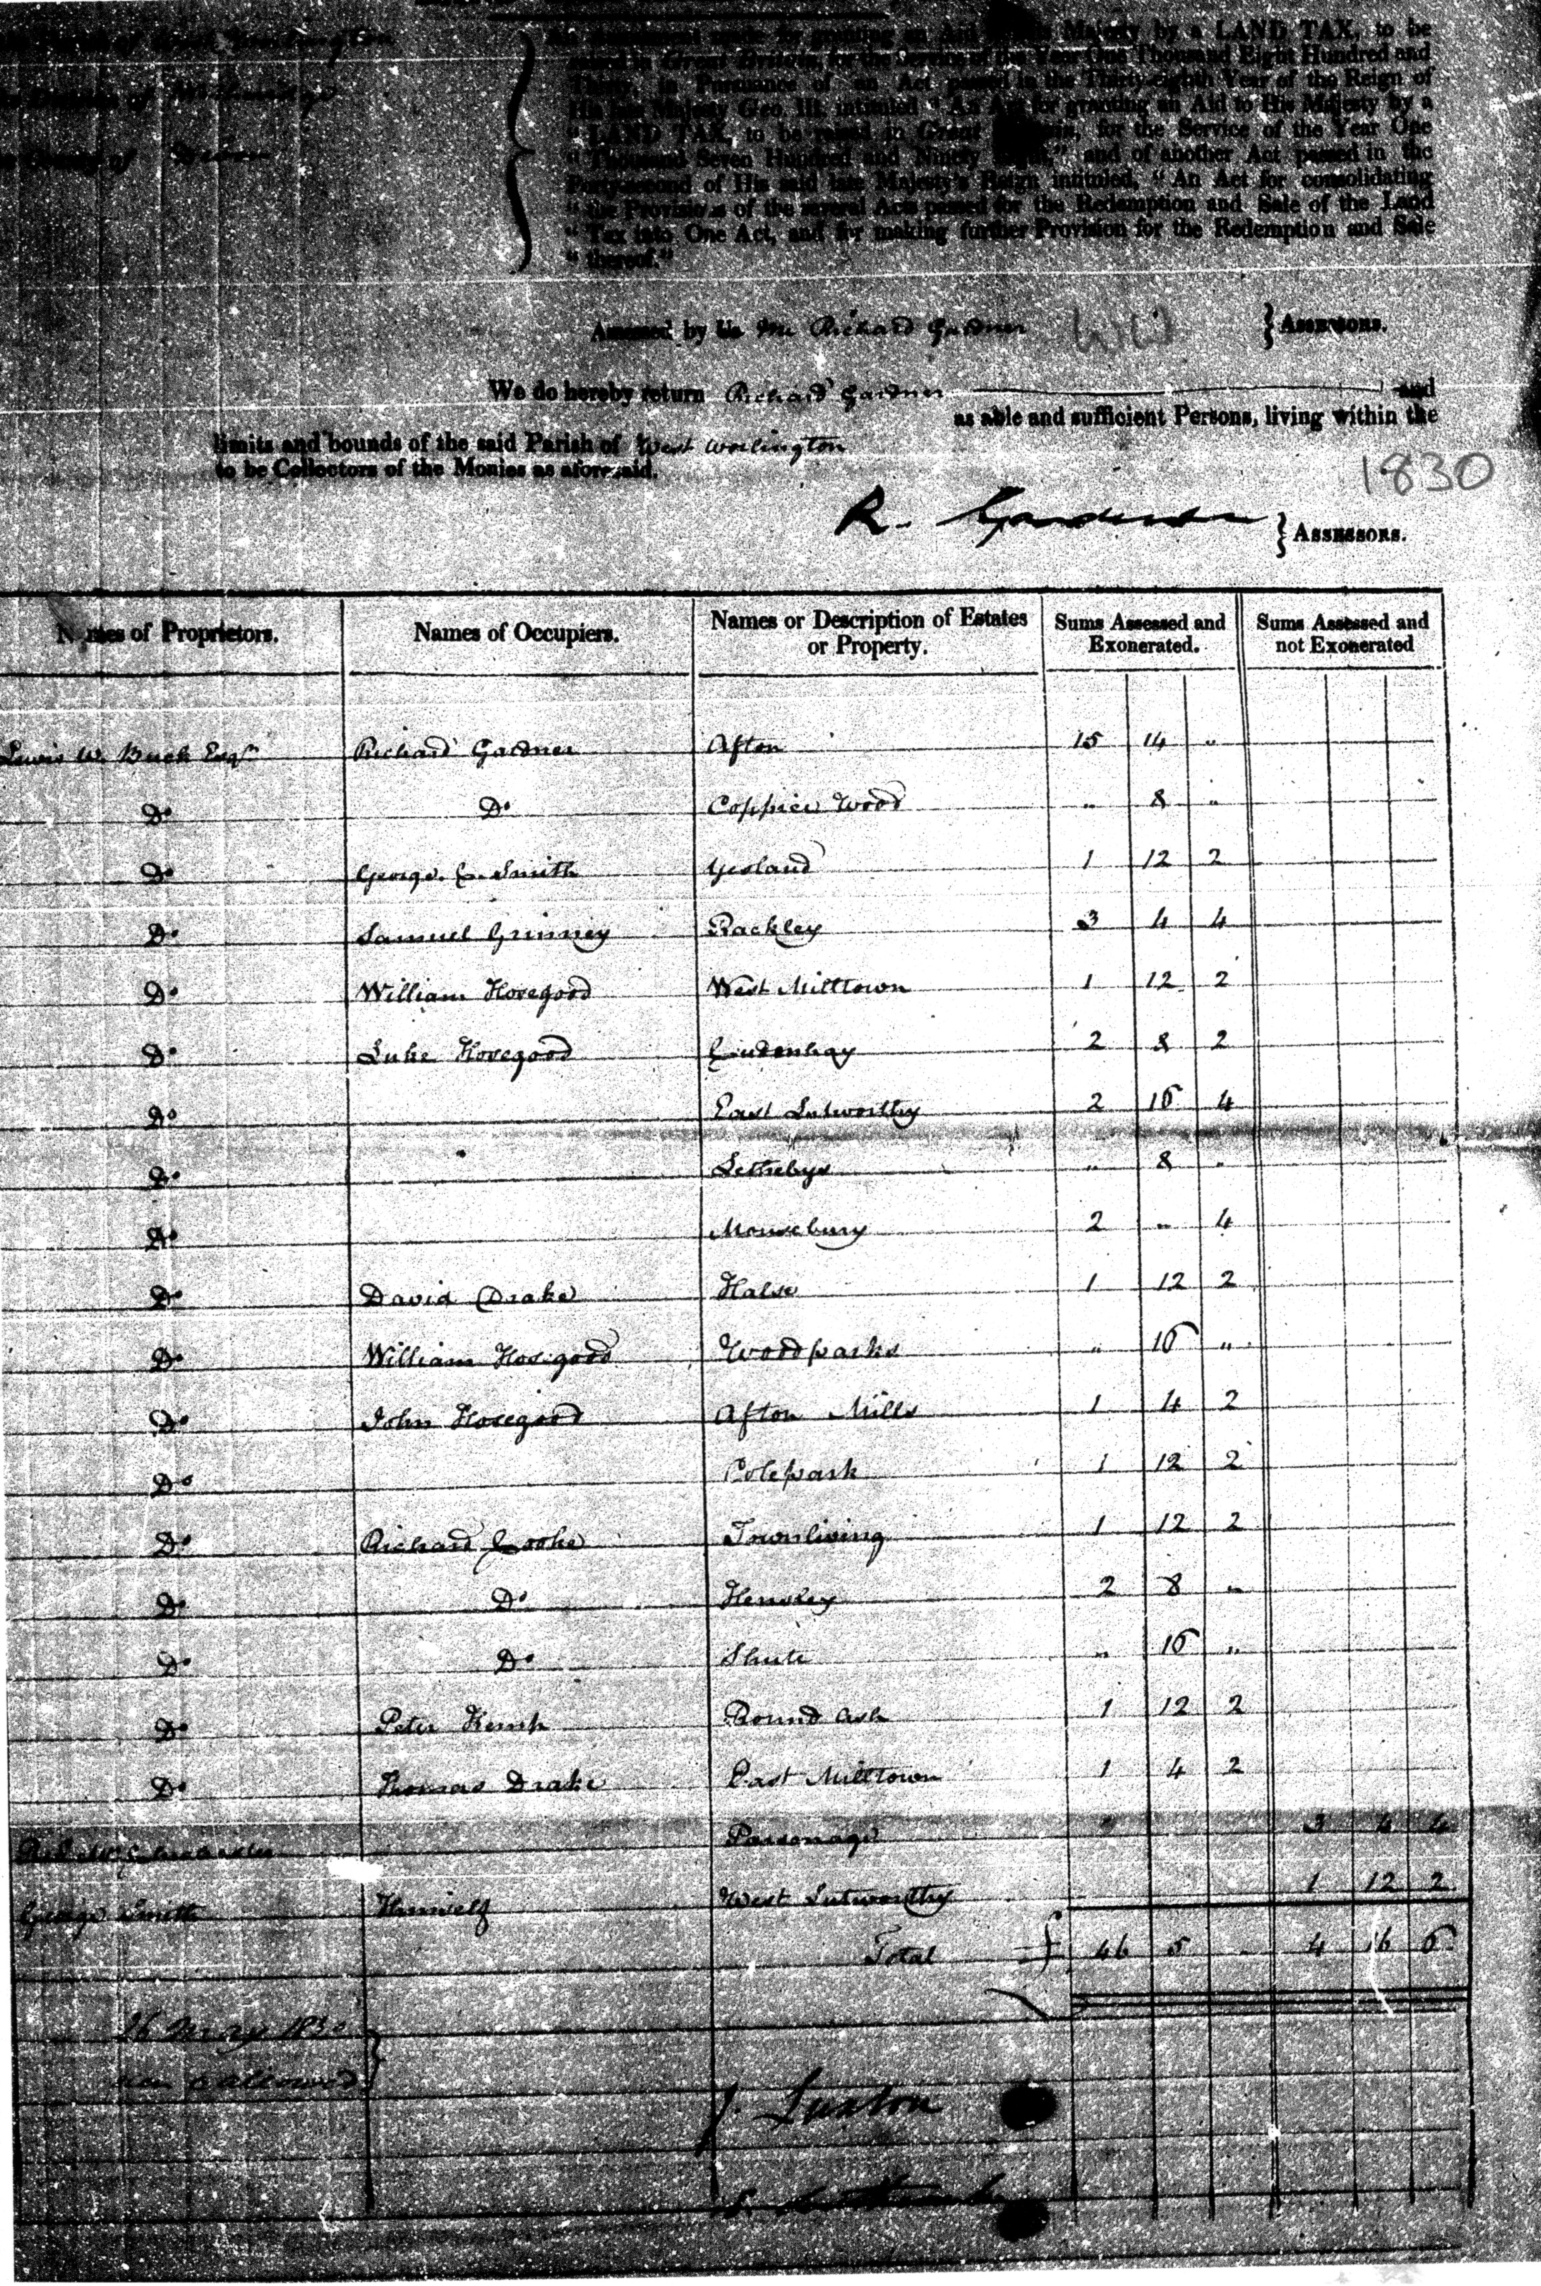 Parish of West Worlington
Division of
County of Devon
An Assessment made for granting an Aid to His Majesty by a LAND TAX, to be
raised in Great Britain, for the Service of the Year One Thousand Eight Hundred and
Thirty, in Pursuance of an Act passed in the Thirty-eighth Year of the Reign of
His late Majesty Geo. III. intituled "An Act for granting an Aid to His Majesty by a
"LAND TAX, to be raised in Great Britain, for the Service of the Year One
"Thousand Seven Hundred and Ninety Eight," and of another Act passed in the
Forty-second of His said late Majesty's Reign intituled, "An Act for consolidating
"the Provisions of the several Acts passed for the Redemption and Sale of the Land
"Tax into One Act, and for making further Provision for the Redemption and Sale
"thereof."
Assessed by Us Me Richard Gardner } ASSESSORS.
We do hereby return Richard Gardner and
as able and sufficient Persons, living within the
limits and bounds of the said Parish of West Worlington
to be Collectors of the Monies as aforesaid.
1830
R. Gardner } ASSESSORS.
Names of Proprietors. Names of Occupiers. Names or Description of Estates or Property. Sums Assessed and Exonerated. Sums Assessed and not Exonerated
Lewis W. Buck Esqr Richard Gardner Afton 15 14 "
Do Do Coppice Wood " 8 "
Do George C. Smith Yeoland 1 12 2
Do Samuel Grinney Rackley 3 4 4
Do William Hosegood West Milltown 1 12 2
Do Luke Hosegood 2 8 2
Do East Lutworthy 2 16 4
Do Lethebys " 8 "
Do Mousebury 2 " 4
Do David Drake Halse 1 12 2
Do William Hosegood Woodparks " 16 "
Do John Hosegood Afton Mills 1 4 2
Do Polepark 1 12 2
Do Richard Cooke Townliving 1 12 2
Do Do Hensley 2 8 "
Do Do Shute " 16 "
Do Peter Kemp Round Ash 1 12 2
Do Thomas Drake East Milltown 1 4 2
Parsonage 3 4 4
George Smith Himself West Lutworthy 1 12 2
Total £ 46 5 - 4 16 6
26 May 1830
allowed }
J. Luxton